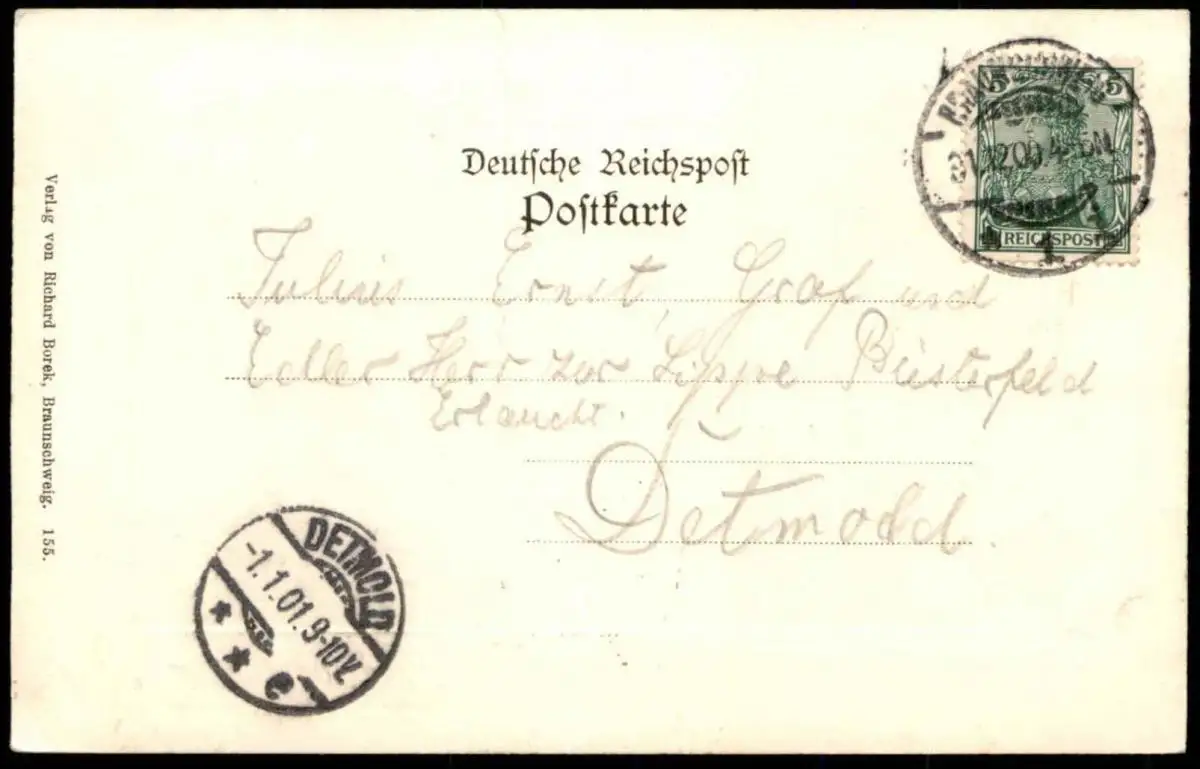 Deutsche Reichspost
Postkarte
5 5
REICHSPOST
BRAUNSCHWEIG
31.12.00.4-5N.
1
Julius Ernst, Graf und
Edler Herr zur Lippe Bisterfeld
Erlaucht.
Detmold.
DETMOLD
-1.1.01.9-10V.
* * e
Verlag von Richard Borek, Braunschweig. 155.